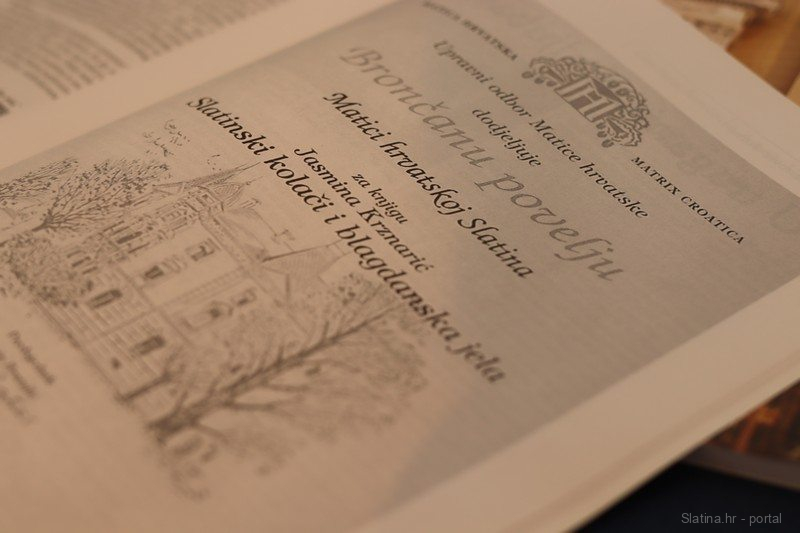 MATICA HRVATSKA
MATRIX CROATICA
Upravni odbor Matice hrvatske
dodjeljuje
Brončanu povelju
Matici hrvatskoj Slatina
za knjigu
Jasmina Krznarić
Slatinski kolači i blagdanska jela
Slatina.hr - portal